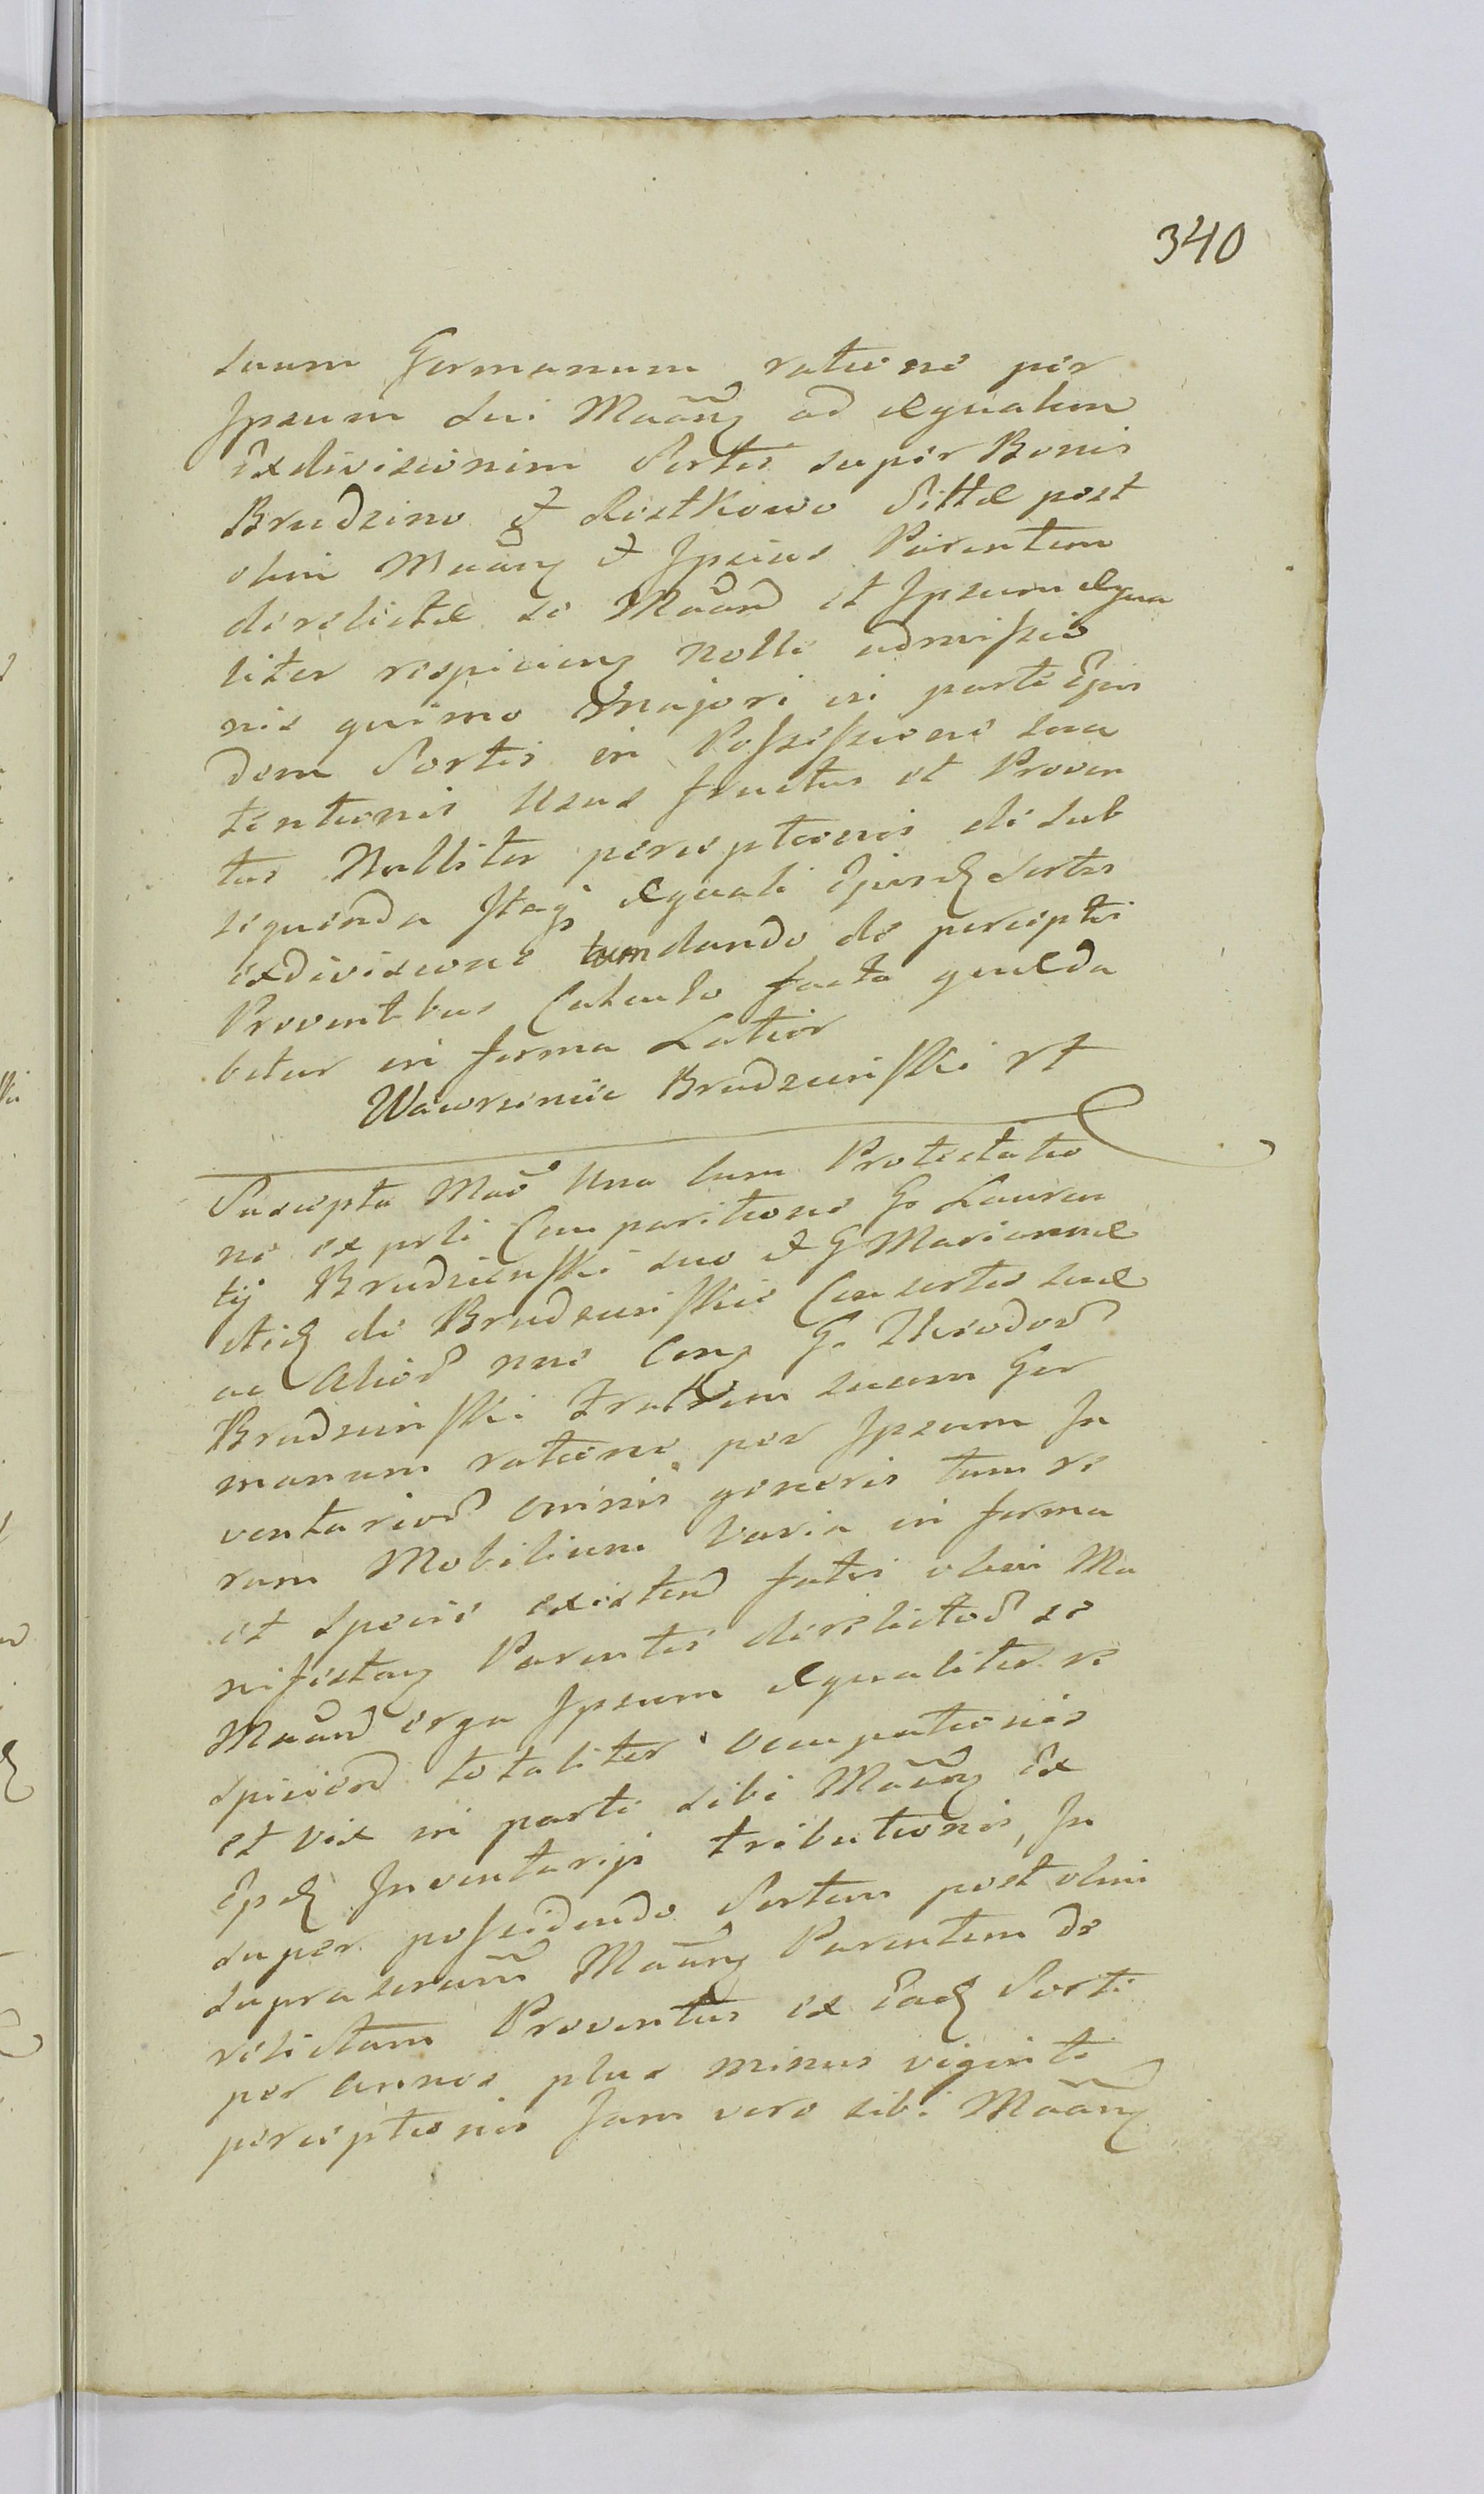 340
suum Germanum ratione per
Ipsum sui Maãng ad æqualem
Exdivisionem Sortis super Bonis
Brudzino et Rostkowo Sittæ post
olim Maãng et Ipsius Parentem
derelictæ se Maãnd et Ipsum æqua
liter respicieng nolle admissio
nis quimo Majori in parte Ejus
dem Sortis in Possessione sua
tentionis Usus fructus et Proven
tus Nulliter perceptionis de sub
sequenda Itaq æquali Ejusd Sortis
exdivisione tum dando de perceptis
Proventibus Calculo facta quæda
betur in forma Latior
Wawrzeniec Brudzinsski
Suscepta Mao Una Cum Protestatio
ne ex prli Comparitione G. Lauren
tij Brudzinsski suo et G Mariannæ
de Brudzinsskie Consortis suæ
ac Alior nne Cong G. Theodor
Brudzinsski Fratrem suum Ger
manum ratione per Ipsum In
ventarior omnis generis tum re
rum Mobilium varia in forma
et specie existend fatis olim Ma
nifestang Parentis derelictor se
Maãnd erga Ipsum æqualiter re
spiciend totaliter occupationis
et vix in parte sibi Maãng Ex
Inventarijs tributionis, In
super possidendo Sortem post olim
Maãng Parentem de
relictam Proventus ex Ead Sorte
per annos plus minus viginti
perceptionis Jam vero sibi Maãng